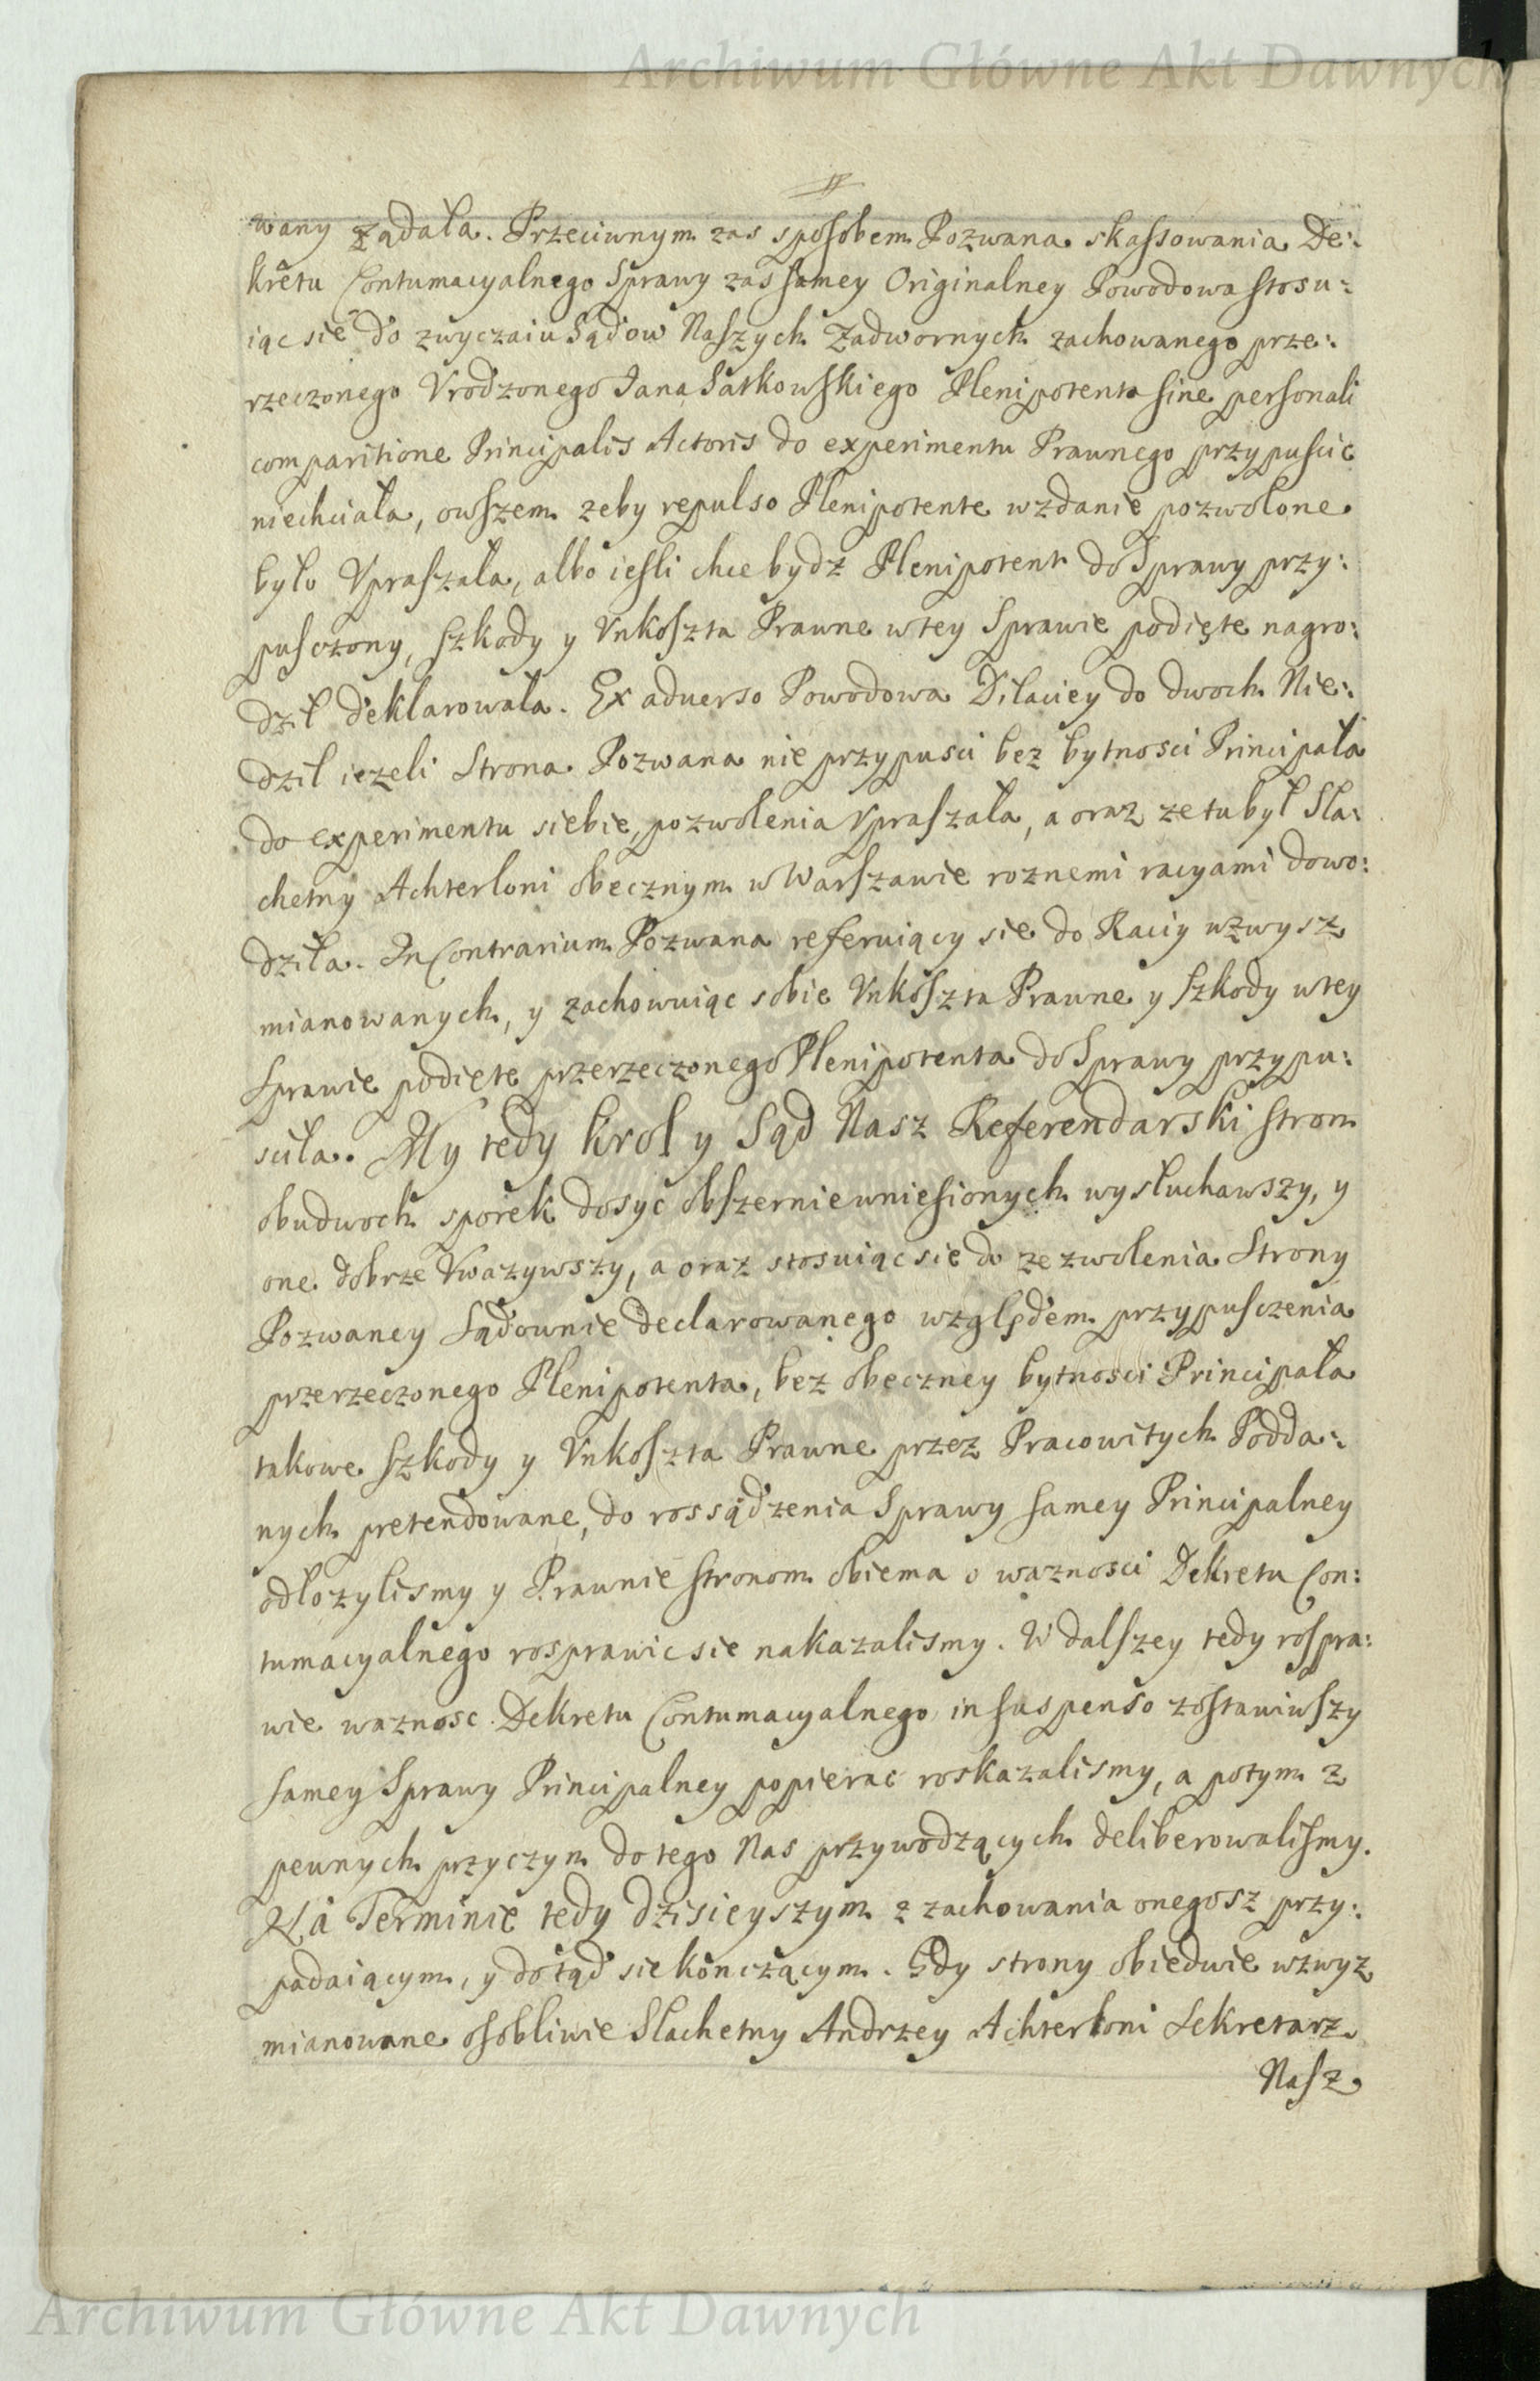 Archiwum Główne Akt Dawnych
wany Ządała. Przeciwnym zas sposobem Pozwana skassowania De:
kretu Contumacyalnego Sprawy zas samey Originalney Powodowa stosu:
iąc sie do zwyczaiu Sądow Naszych Zadwornych zachowanego prze:
rzeczonego Vrodzonego Jana Satkowskiego Plenipotenta sine personali
comparitione Principalis Actoris do experimentu Prawnego przypuscic
niechciała, owszem zeby repulso Plenipotente wzdanie pozwolone
było Vpraszała, albo iesli chce bydz Plenipotent do Sprawy przy:
pusczony, szkody y Vnkoszta Prawne wtey Sprawie podięte nagro:
dził deklarowała. Ex aduerso Powodowa Dilaciey do dwoch Nie:
dzil iezeli Strona Pozwana nie przypusci bez bytnosci Principała
do experimentu siebie, pozwolenia Vpraszała, a oraz ze tu był Sla:
chetny Achterloni obecznym w Warszawie roznemi racyami dowo:
dziła. In Contrarium Pozwana referuiący sie do Raciy wzwysz
mianowanych, y zachowuiąc sobie Vnkoszta Prawne y szkody wtey
Sprawie podięte przerzeczonego Plenipotenta do Sprawy przypu:
sciła. My tedy Krol y Sąd Nasz Referendarski stron
obudwoch sporek dosyć obszernie wniesionych wysłuchawszy, y
one dobrze Vwazywszy, a oraz stosuiąc sie do zezwolenia Strony
Pozwaney Sądownie declarowanego względem przypusczenia
przerzeczonego Plenipotenta, bez obeczney bytnosci Principała
takowe szkody y Vnkoszta Prawne przez Pracowitych Podda:
nych pretendowane, do rossądzenia Sprawy samey Principalney
odłozylismy y Prawnie stronom obiema o waznosci Dekretu Con:
tumacyalnego rosprawic sie nakazalismy. W dalszey tedy rospra:
wie waznosc Dekretu Contumacyalnego in suspenso zostawiwszy
samey Sprawy Principalney popierac roskazalismy, a potym z
pewnych przyczyn do tego Nas przywodzących deliberowalismy.
Na Terminie tedy dzisieyszym z zachowania onegosz przy:
padaiącym, y dotąd sie konczącym. Gdy strony obiedwie wzwyz
mianowane osobliwie Slachetny Andrzey Achterloni Sekretarz
Nasz
Archiwum Główne Akt Dawnych